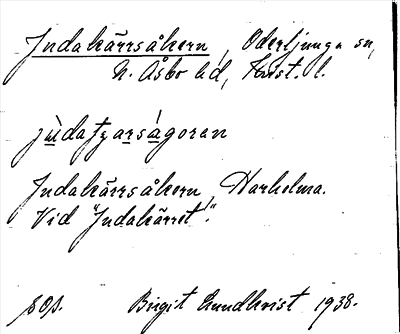 Judakärrsåkern, Oderljunga sn,
N. Åsbo hd, Krist. l.
jùdatɀarsågoran
Judakärrsåkern, Harhelma.
Vid "Judakärret".
sOp. Birgit Lundkvist 1938.